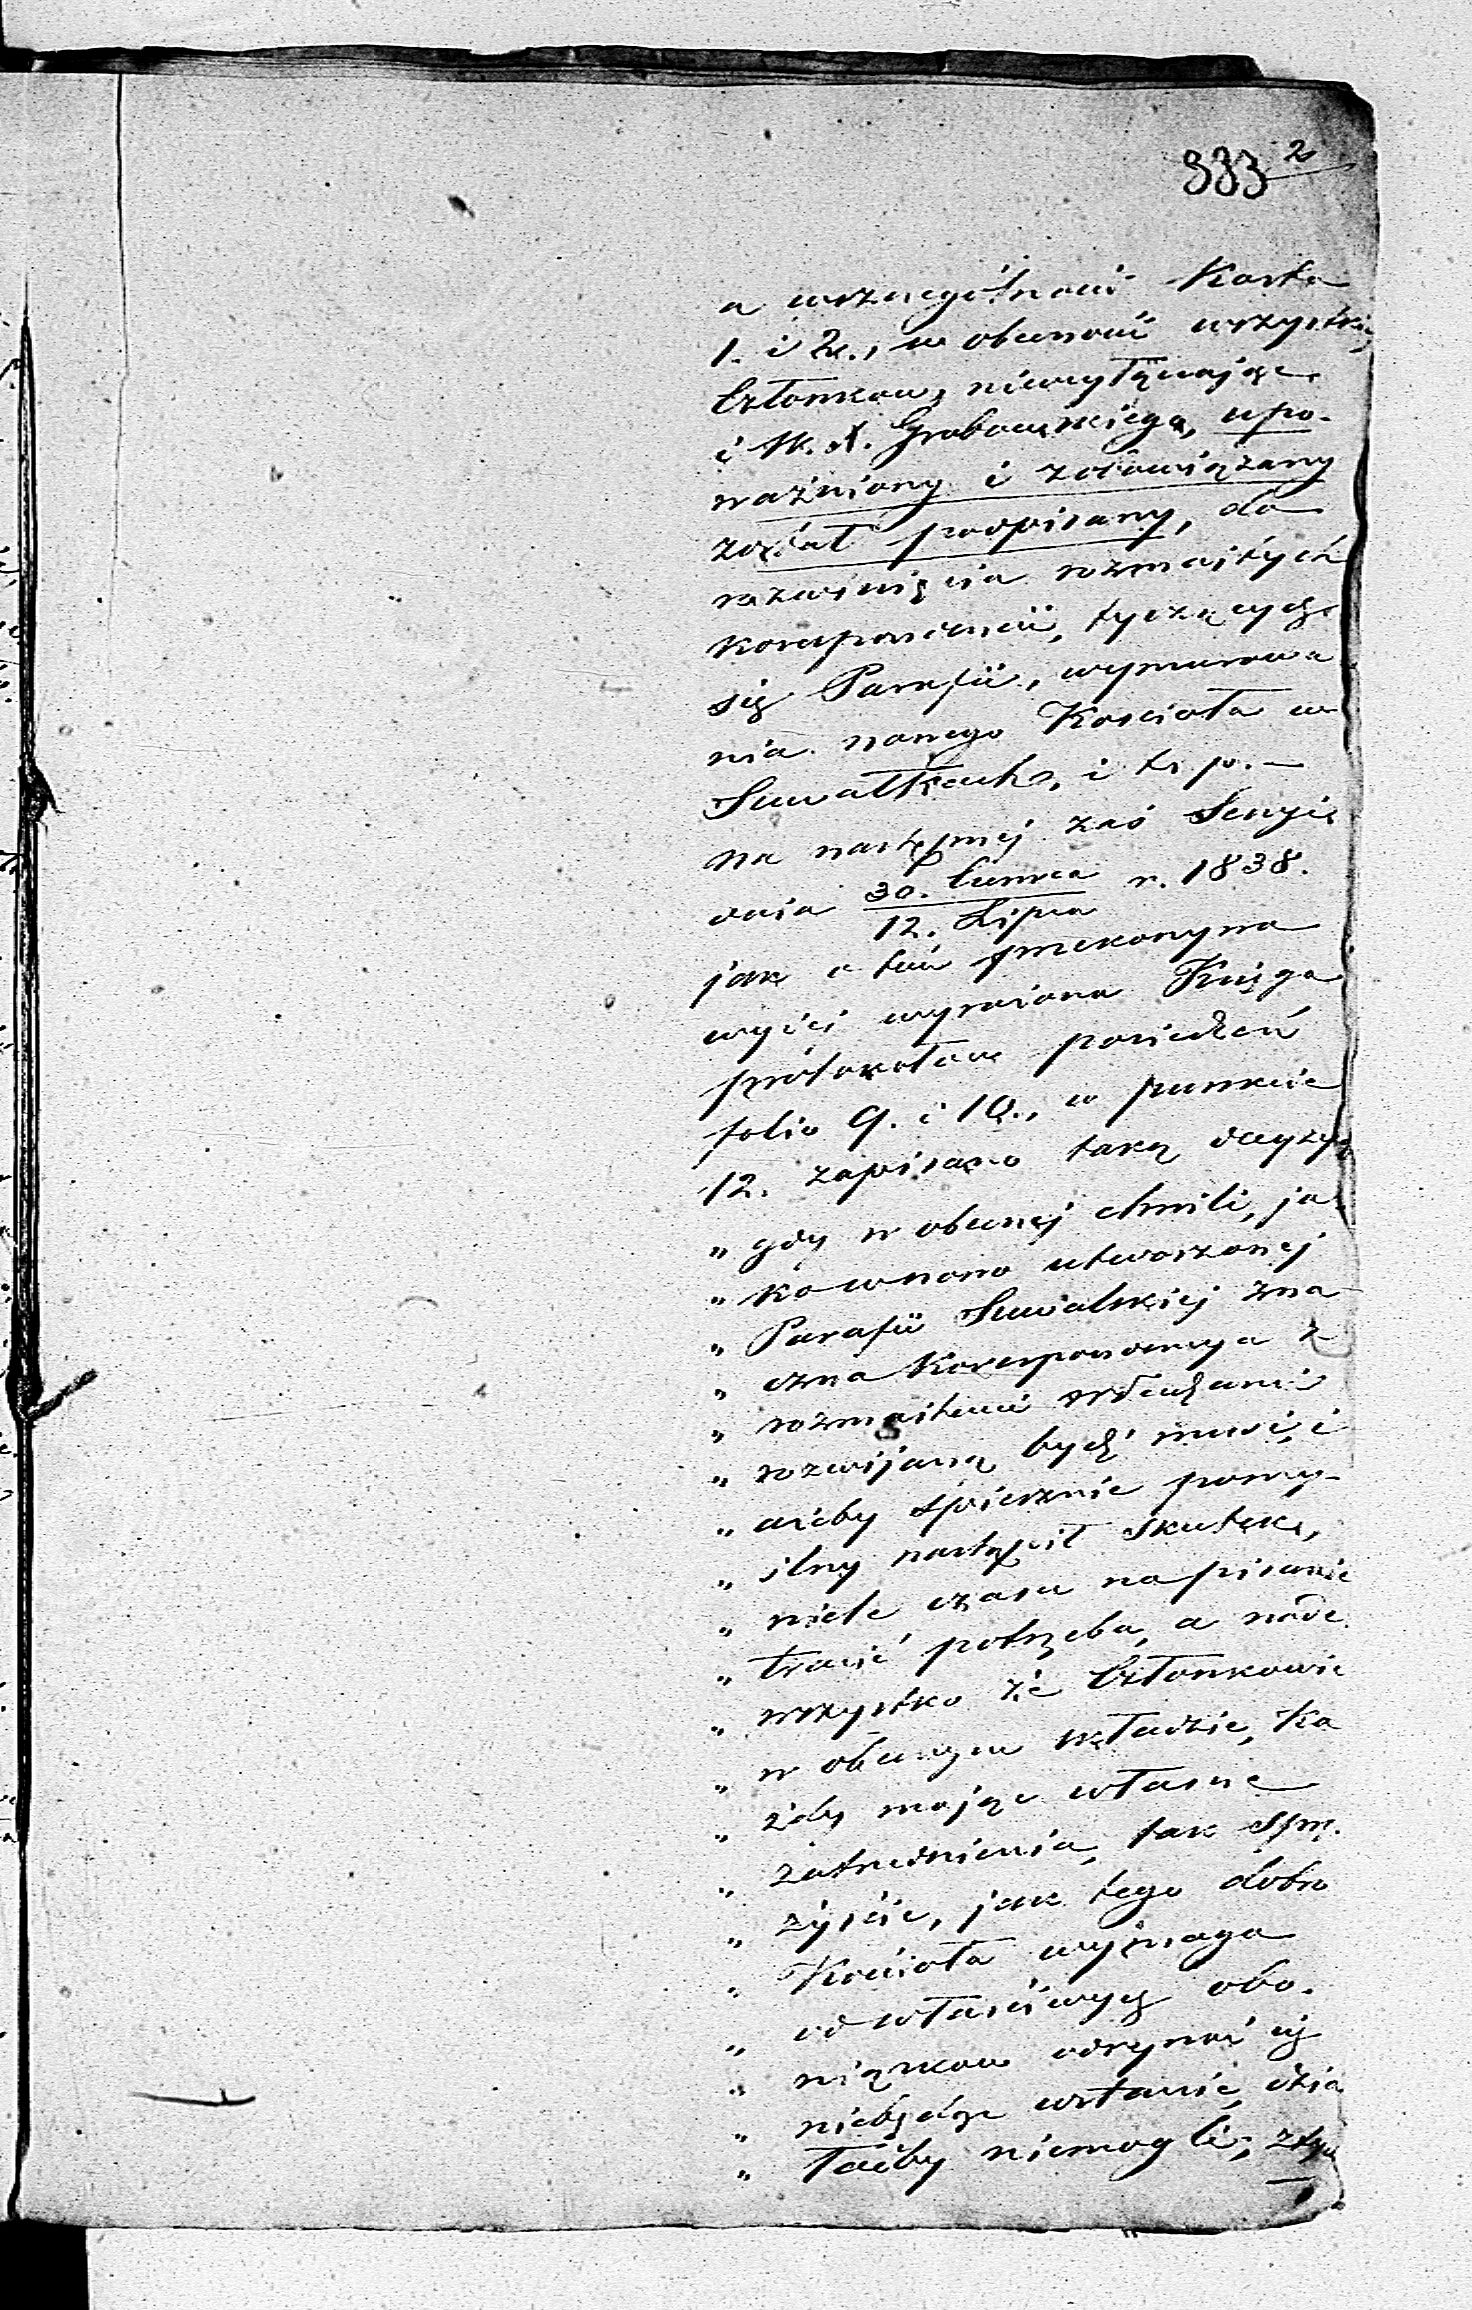 333 2
a wszczególności Karta
1. i 2., w obecności wszystkich
Członkow, niewyłączając
i W. A. Grabowskiego, upo-
ważniony i zobowiązany
został podpisany, do
rozwinięcia rozmaitych
korespondencii, tyczących
się Parafii, wymurowa-
nia nowego Kościoła w
Suwałkach, i t. p. —
na następnej zaś Sessyi
dnia 30. Czerwca / 12. Lipca r. 1838.
jak o tem przekonywa
wyżej wyrażona Księga
prótokołow posiedzeń
folio 9. i 10., w punkcie
12. zapisano taką decyzyą
„ gdy w obecnej chwili, ja-
„ ko w nowo utworzonej
„ Parafii Suwalskiej zna-
„ czna Korespondencya z
„ rozmaitemi Władzami
„ rozwijaną bydź musi, i
„ ażeby śpiesznie pomy-
„ ślny nastąpił skutek,
„ wiele czasu na pisanie
„ tracić potrzeba, a nade
„ wszystko że Członkowie
„ w obecnym składzie, Ka
„ żdy mając własne
„ zatrudnienia, tak sprę-
„ żyście, jak tego dobro
„ Kościoła wymaga
„ od właściwych obo-
„ wiązkow odrywać się
„ niebędąc wstanie, dzia
„ łaćby niemogli;